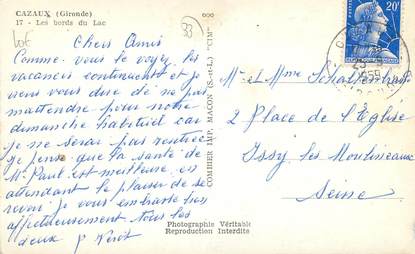 CAZAUX (Gironde)
17 - Les bords du Lac
33
Chers Amis
Comme vous le voyez les
vacances continuent et je
viens vous dire de ne pas
m'attendre pour notre
dimanche habituel car
je ne serai pas rentrée
je pense que la santé de
Mr Paul est meilleure en
attendant le plaisir de se
revoir je vous embrasse bien
affectueusement tous les
deux
COMBIER IMP. MACON (S.-et-L.) "CIM"
Photographie Véritable
Reproduction Interdite
20F
1959
Mr et Mme
2 Place de l'Eglise
Issy les Moulineaux
Seine